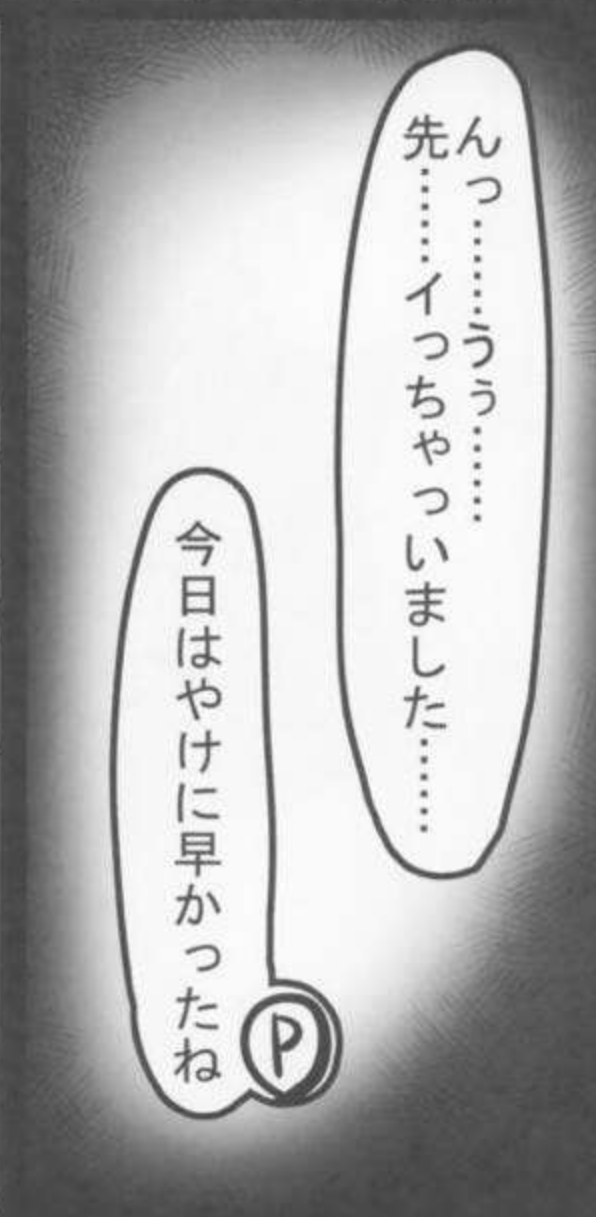 んっ………うぅ……
先……イっちゃっいました……
今日はやけに早かったね
P